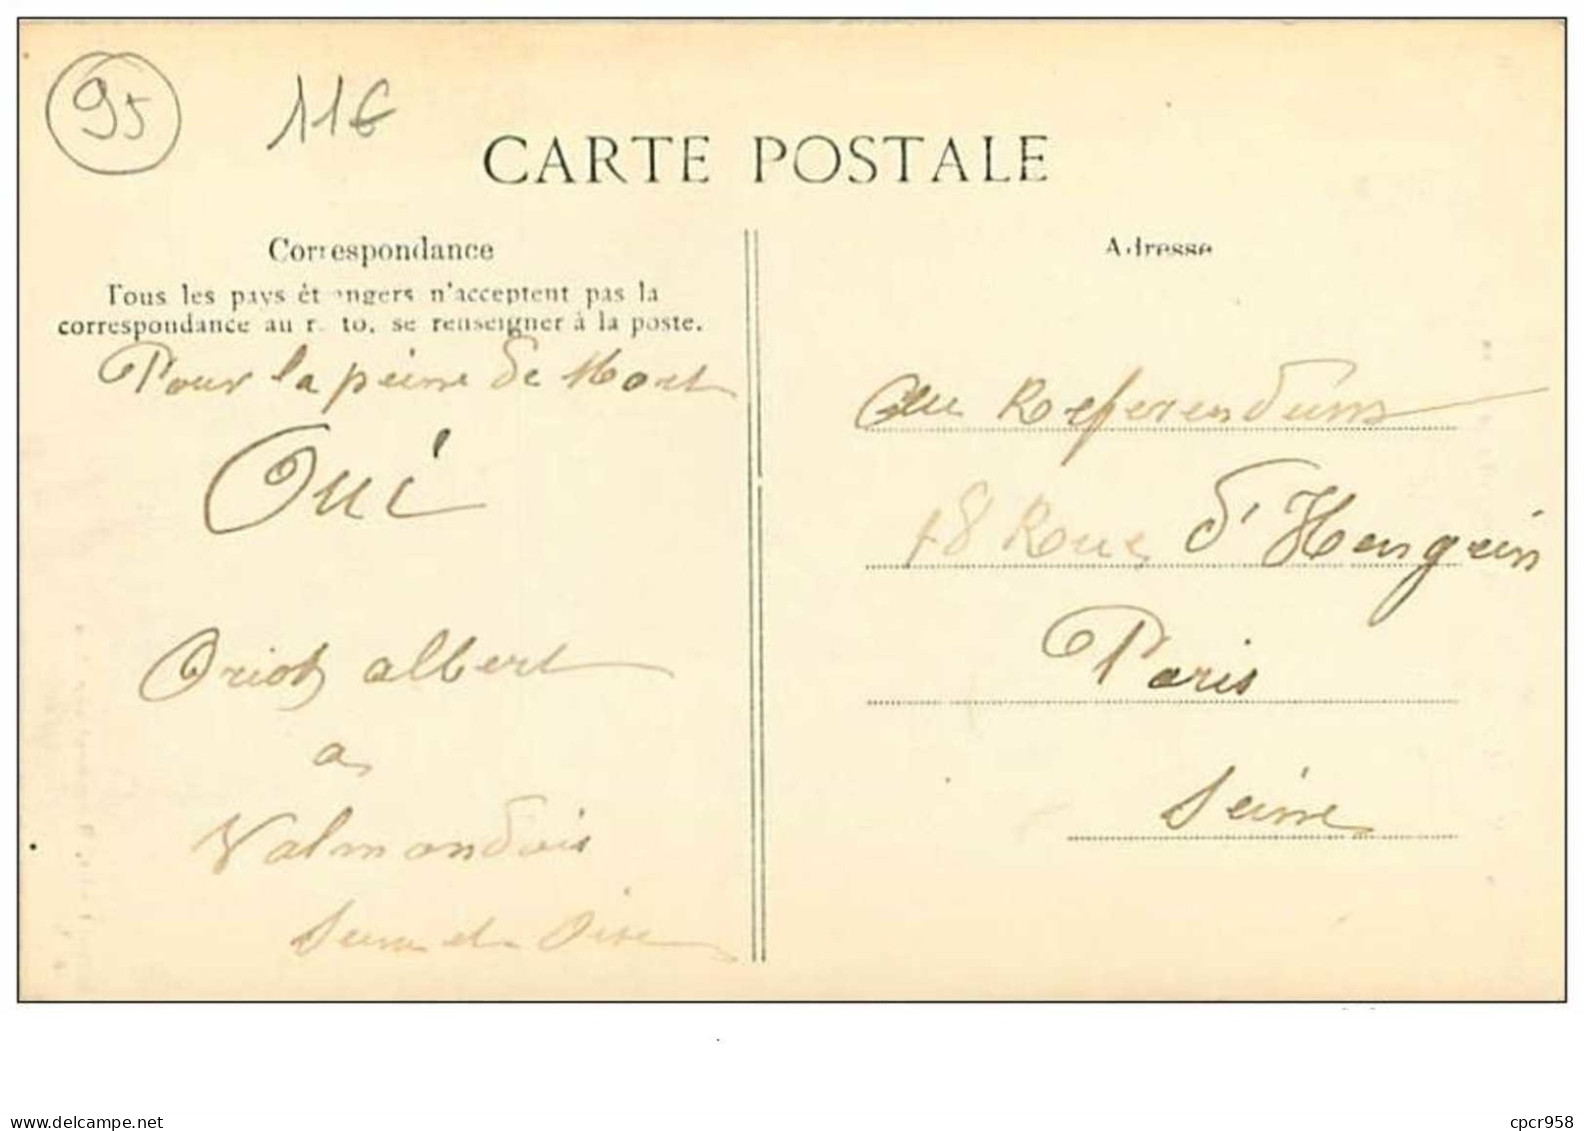 95
11€
CARTE POSTALE
Correspondance
Tous les pays étrangers n'acceptent pas la
correspondance au recto, se renseigner à la poste.
Pour la peine de Mort
Oui
Oriot albert
a
Valmondois
Seine et Oise
Adresse
Au Referendum
18 Rue d'Hengein
Paris
Seine
www.delcampe.net
cpcr958